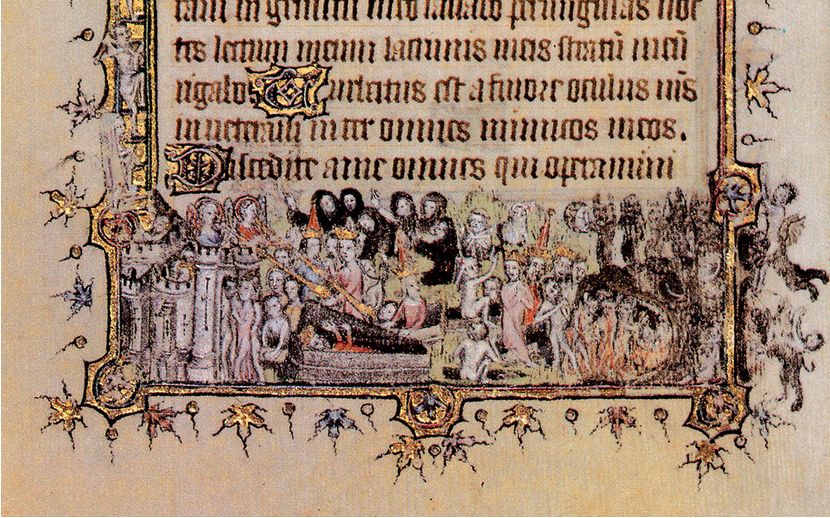 raui in gemitu meo lauabo per singulas noc
tes lectum meum lacrimis meis stratū meū
rigabo. Turbatus est a furore oculus m̄s
inueteraui inter omnes inimicos meos.
Discedite a me omnes qui operamini